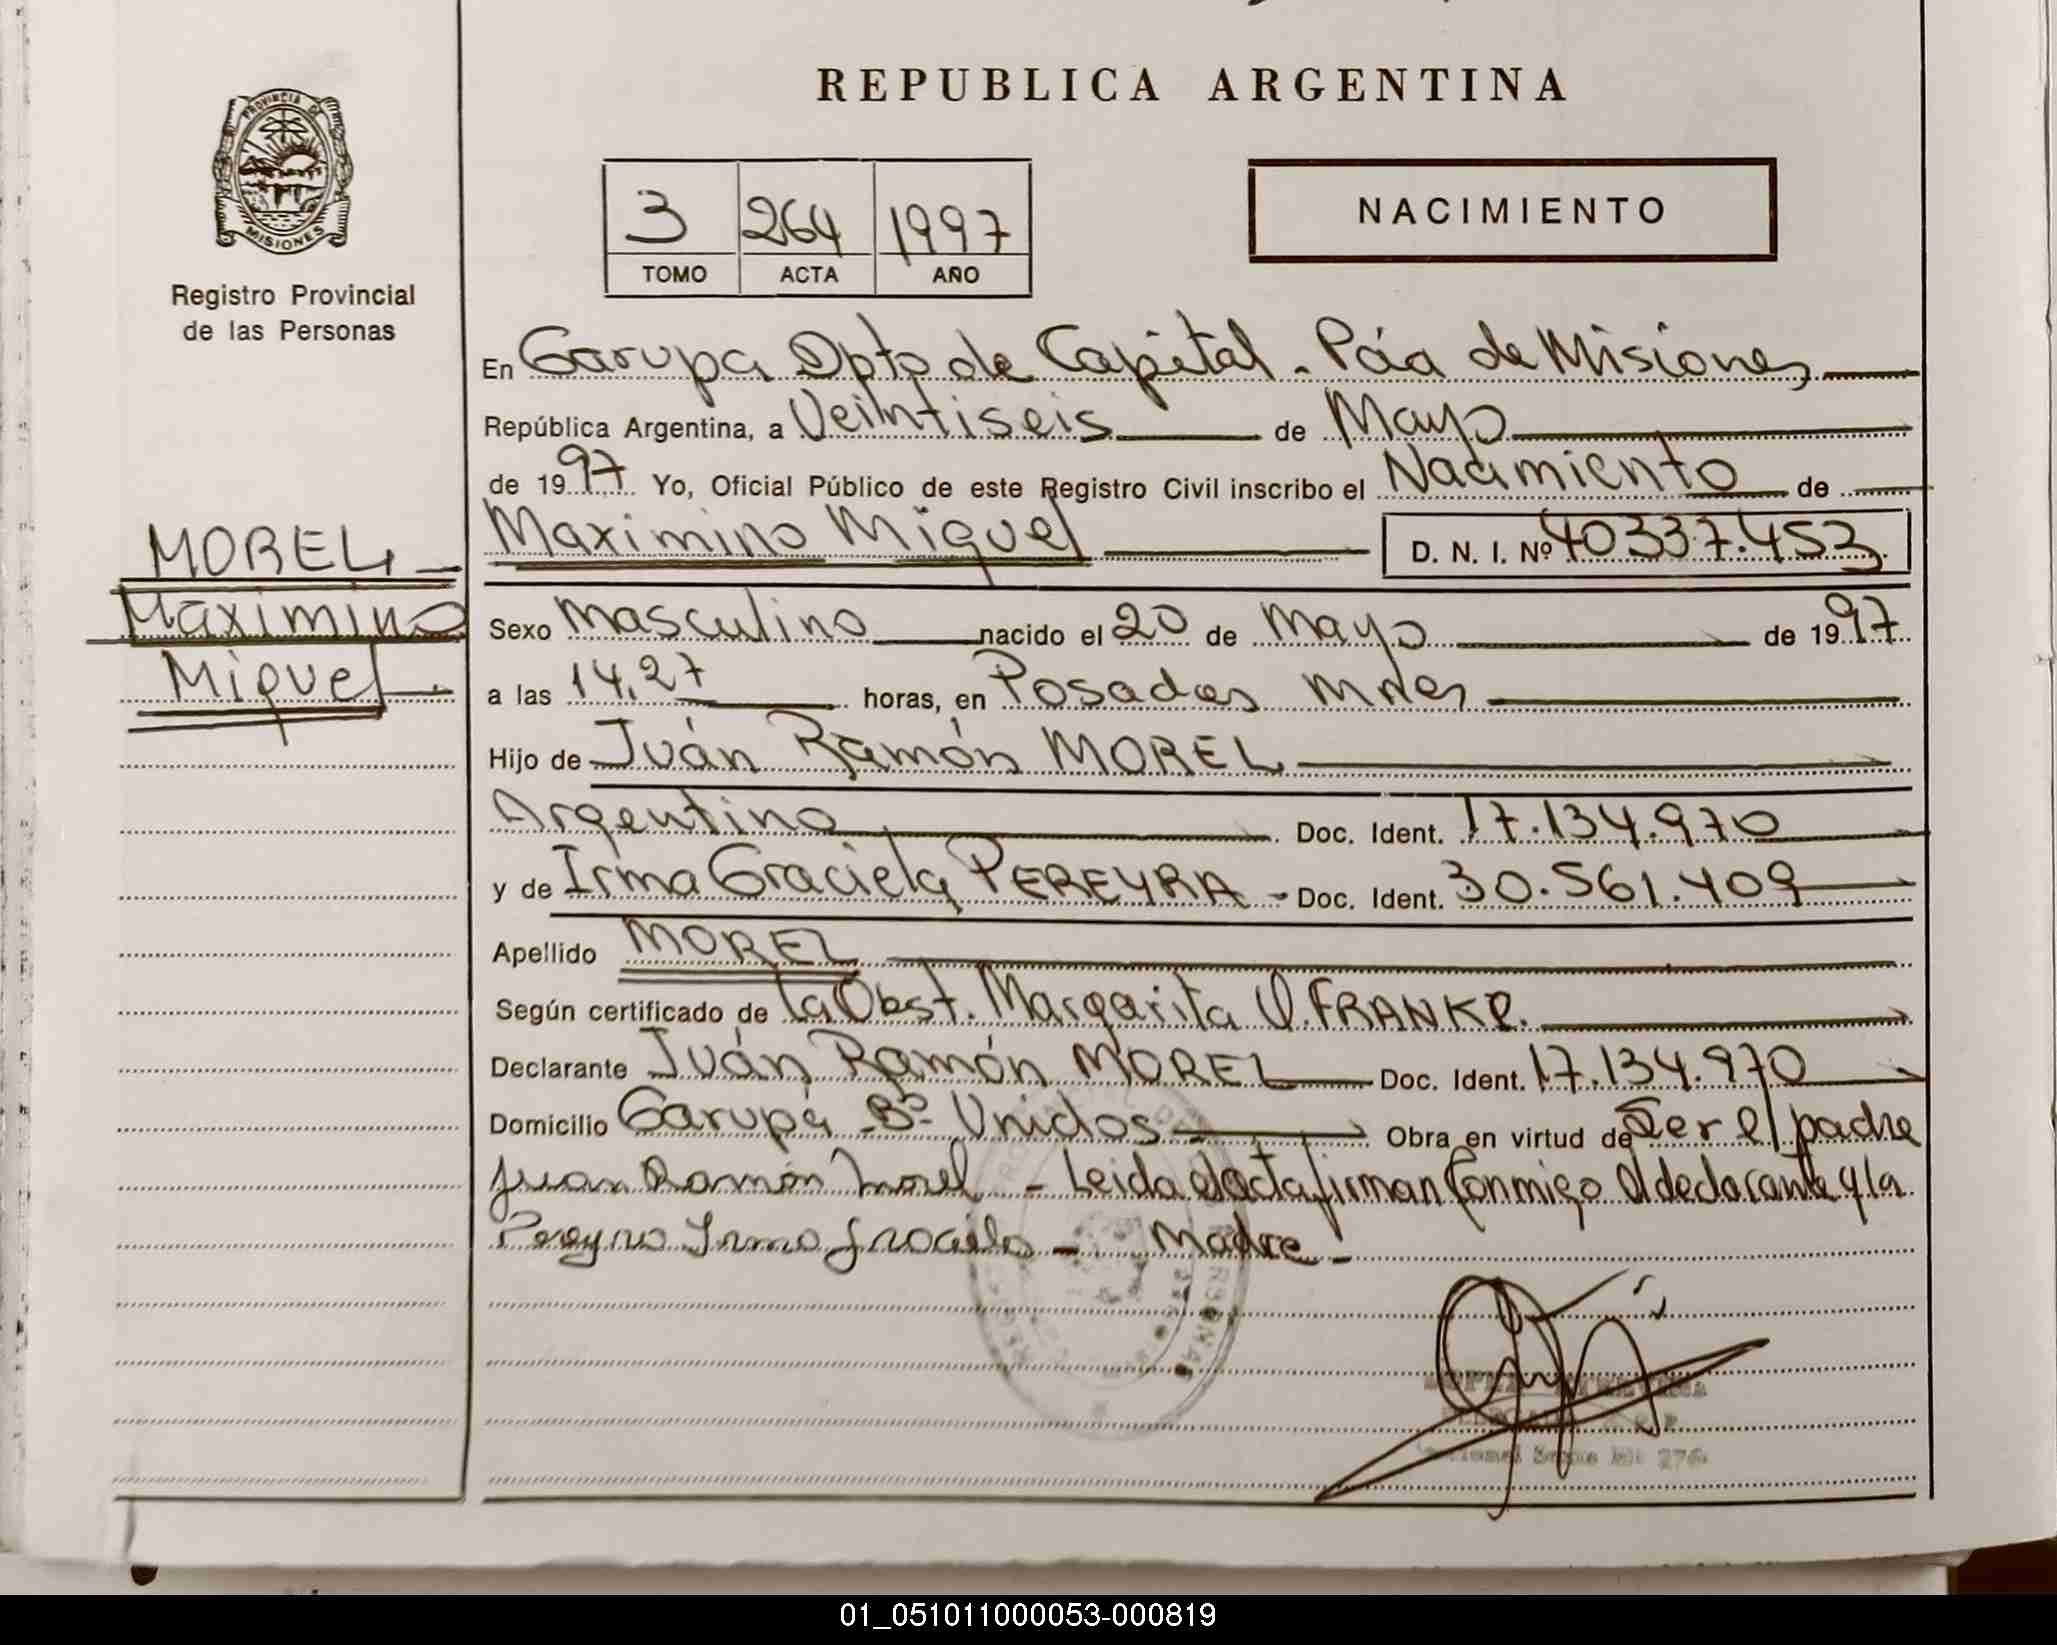 REPUBLICA ARGENTINA
PROVINCIA DE
MISIONES
Registro Provincial
de las Personas
3 264 1997
TOMO ACTA AÑO
NACIMIENTO
En Garupa Dpto de Capital - Pcia de Misiones
República Argentina, a Veintiseis de Mayo
de 1997 Yo, Oficial Público de este Registro Civil inscribo el Nacimiento de
MOREL
Maximino
Miguel
Maximino Miguel D. N. I. Nº 40337.453
Sexo Masculino nacido el 20 de Mayo de 1997
a las 14,27 horas, en Posadas Mnes
Hijo de Juán Ramón MOREL
Argentino Doc. Ident. 17.134.970
y de Irma Graciela PEREYRA - Doc. Ident. 30.561.409
Apellido MOREL
Según certificado de la Obst. Margarita O. FRANKE.
Declarante Juán Ramón MOREL Doc. Ident. 17.134.970
Domicilio Garupá Bº Unidos Obra en virtud de Ser el padre
Juan Ramón Morel - Leida el acta firman Conmigo el declarante y la
Pereyra Irma Graciela - Madre -
01_051011000053-000819